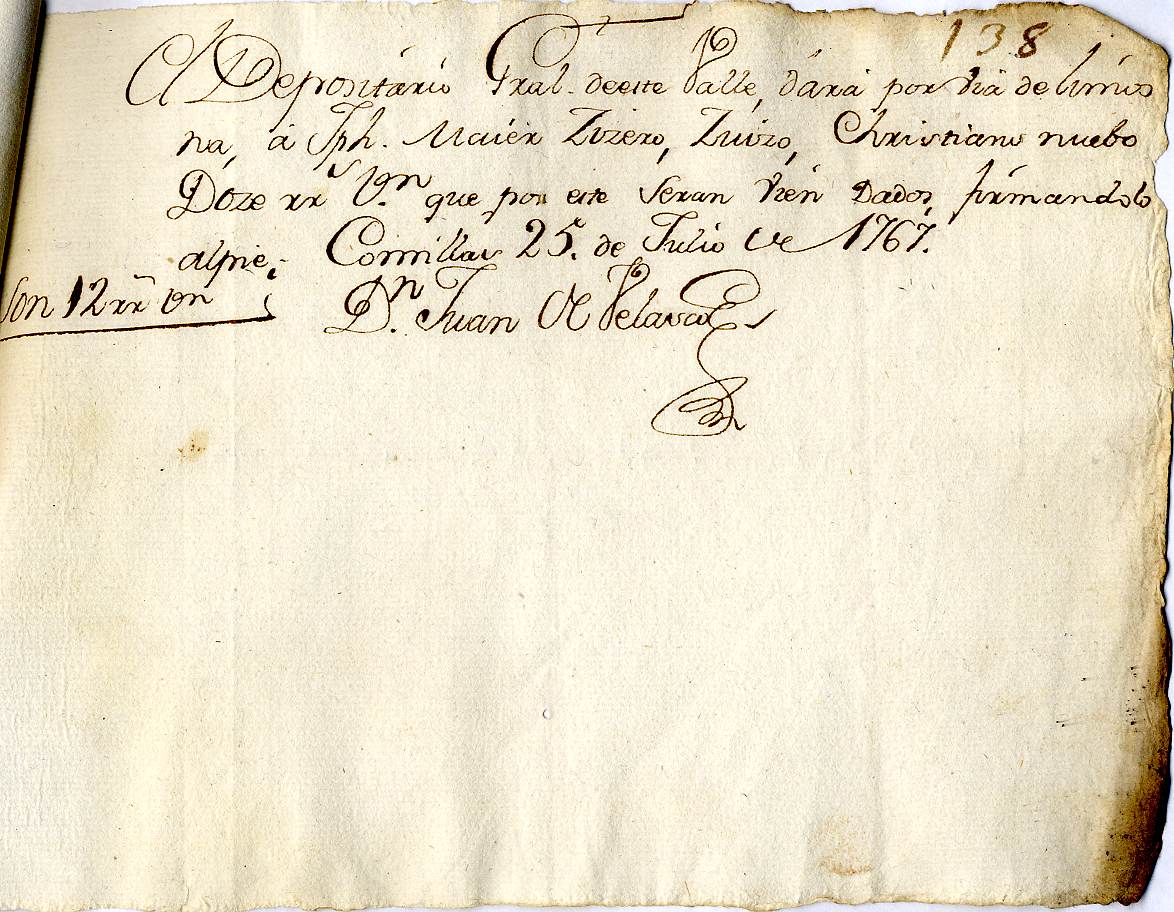 138
El Depositario Gral. deeste Valle, dará por via de limos
na, á Jph. Maier Zizero, Zuizo, Christiano nuebo
Doze rrs Vn. que por este seran vien dados, firmandolo
alpie; Comillas 25. de Julio de 1767.
Son 12 rrs Vn
Dn. Juan de